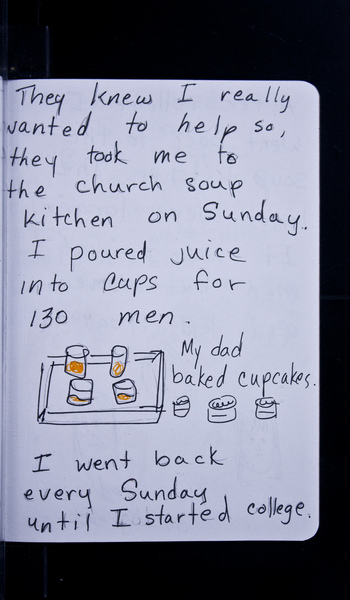 They knew I really
wanted to help so,
they took me to
the church soup
kitchen on Sunday.
I poured juice
into cups for
130 men.
My dad
baked cupcakes.
I went back
every Sunday
until I started college.